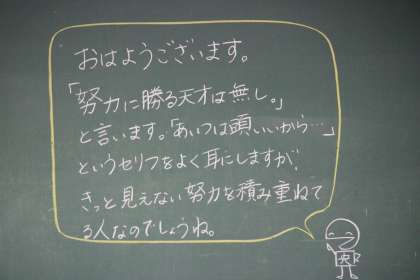 おはようございます。
「努力に勝る天才は無し。」
と言います。「あいつは頭いいから…」
というセリフをよく耳にしますが、
きっと見えない努力を積み重ねて
る人なのでしょうね。